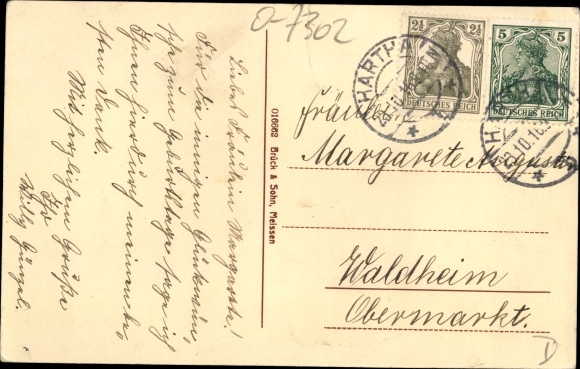 0-7302
Liebes Fräulein Margarete!
Für die innigen Glückwün-
sche zum Geburtstage sage ich
Ihnen hierdurch meinen be-
sten Dank.
Mit herzlichem Gruße
Ihr
Willy Güngel.
016662 Brück & Sohn, Meissen
2½ 2½
DEUTSCHES REICH
5 5
DEUTSCHES REICH
HARTHA
HARTHA
Fräulein
Margarete Augustin
Waldheim
Obermarkt.
D